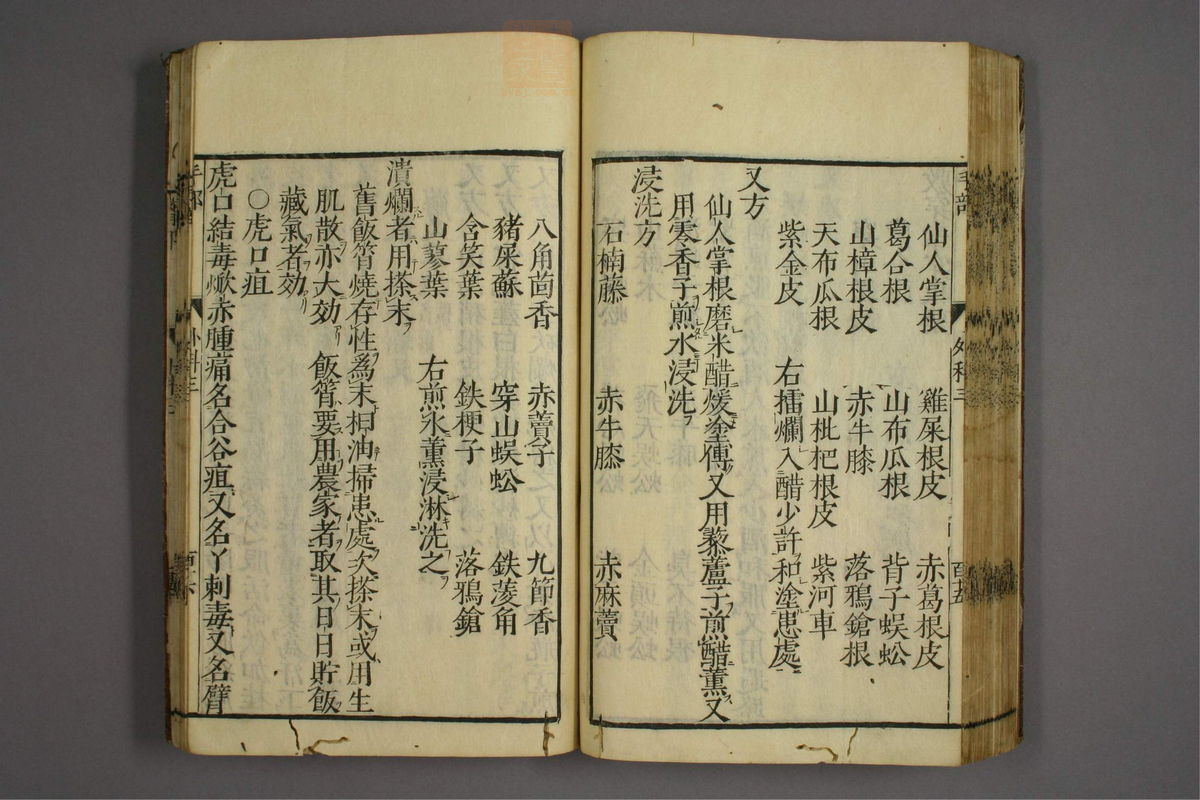 仙人掌根　雞屎根皮　赤葛根皮
葛合根　山布瓜根　背子蜈蚣
山樟根皮　赤牛膝　落鴉鎗根
天布瓜根　山枇杷根皮　紫河車
紫金皮　右擂爛入醋少許和塗患處
又方
仙人掌根磨米醋煖塗傅又用藜蘆子煎醋薰又
用零香子煎水浸洗
浸洗方
石楠藤　赤牛膝　赤麻藚
八角茴香　赤藚子　九節香
豬屎蘇　穿山蜈蚣　鉄菱角
含笑葉　鉄梗子　落鴉鎗
山蓼葉　右煎水薰浸淋洗之
潰爛者用搽末
舊飯筲燒存性爲末抇油掃患處次搽末或用生
肌散亦大効　飯筲要用農家者取其日日貯飯
藏氣者効
○虎口疽
虎口結毒焮赤腫痛名合谷疽又名丫刺毒又名臂